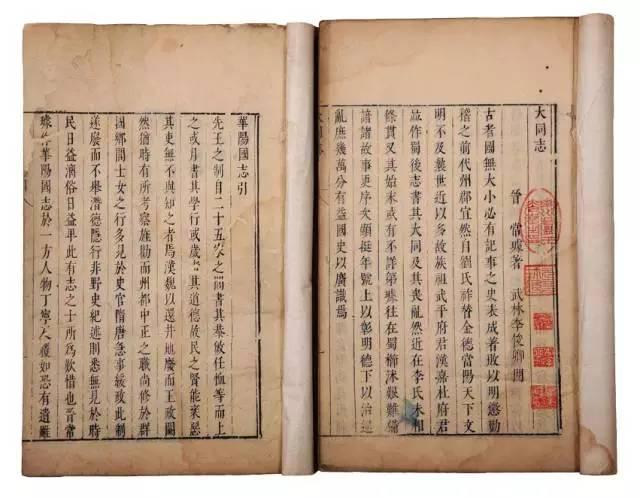 大同志
晉 常璩著 武林李俊卿閱
古者國無大小必有記事之史表成著敗以明懲勸
稽之前代州郡宜然自劉氏祚替金德當陽天下文
明不及曩世近以多故族祖武平府君漢嘉杜府君
並作蜀後志書其大同及其喪亂然逮在李氏未相
條貫又其始末或有不詳第璩往在蜀櫛沐艱難備
諳諸故事更序次顯挺年號上以彰明德下以治違
亂庶幾萬分有益國史以廣識焉
華陽國志引
先王之制自二十五家之閭書其恭敬任恤等而上
之或月書其學行或歲考其道德故民之賢能衺惡
其吏無不與知之者焉漢魏以還井地廢而王政闕
然猶時有所考察旌勸而州都中正之職尚修於群
國鄉閭士女之行多見於史官隋唐急事緩政此制
遂廢而不舉潛德隱行非野史紀述則悉無見於時
民日益漓俗日益卑此有志之士所為歎惜也晉常
璩作華陽國志於一方人物丁寧反覆如恐有遺雖